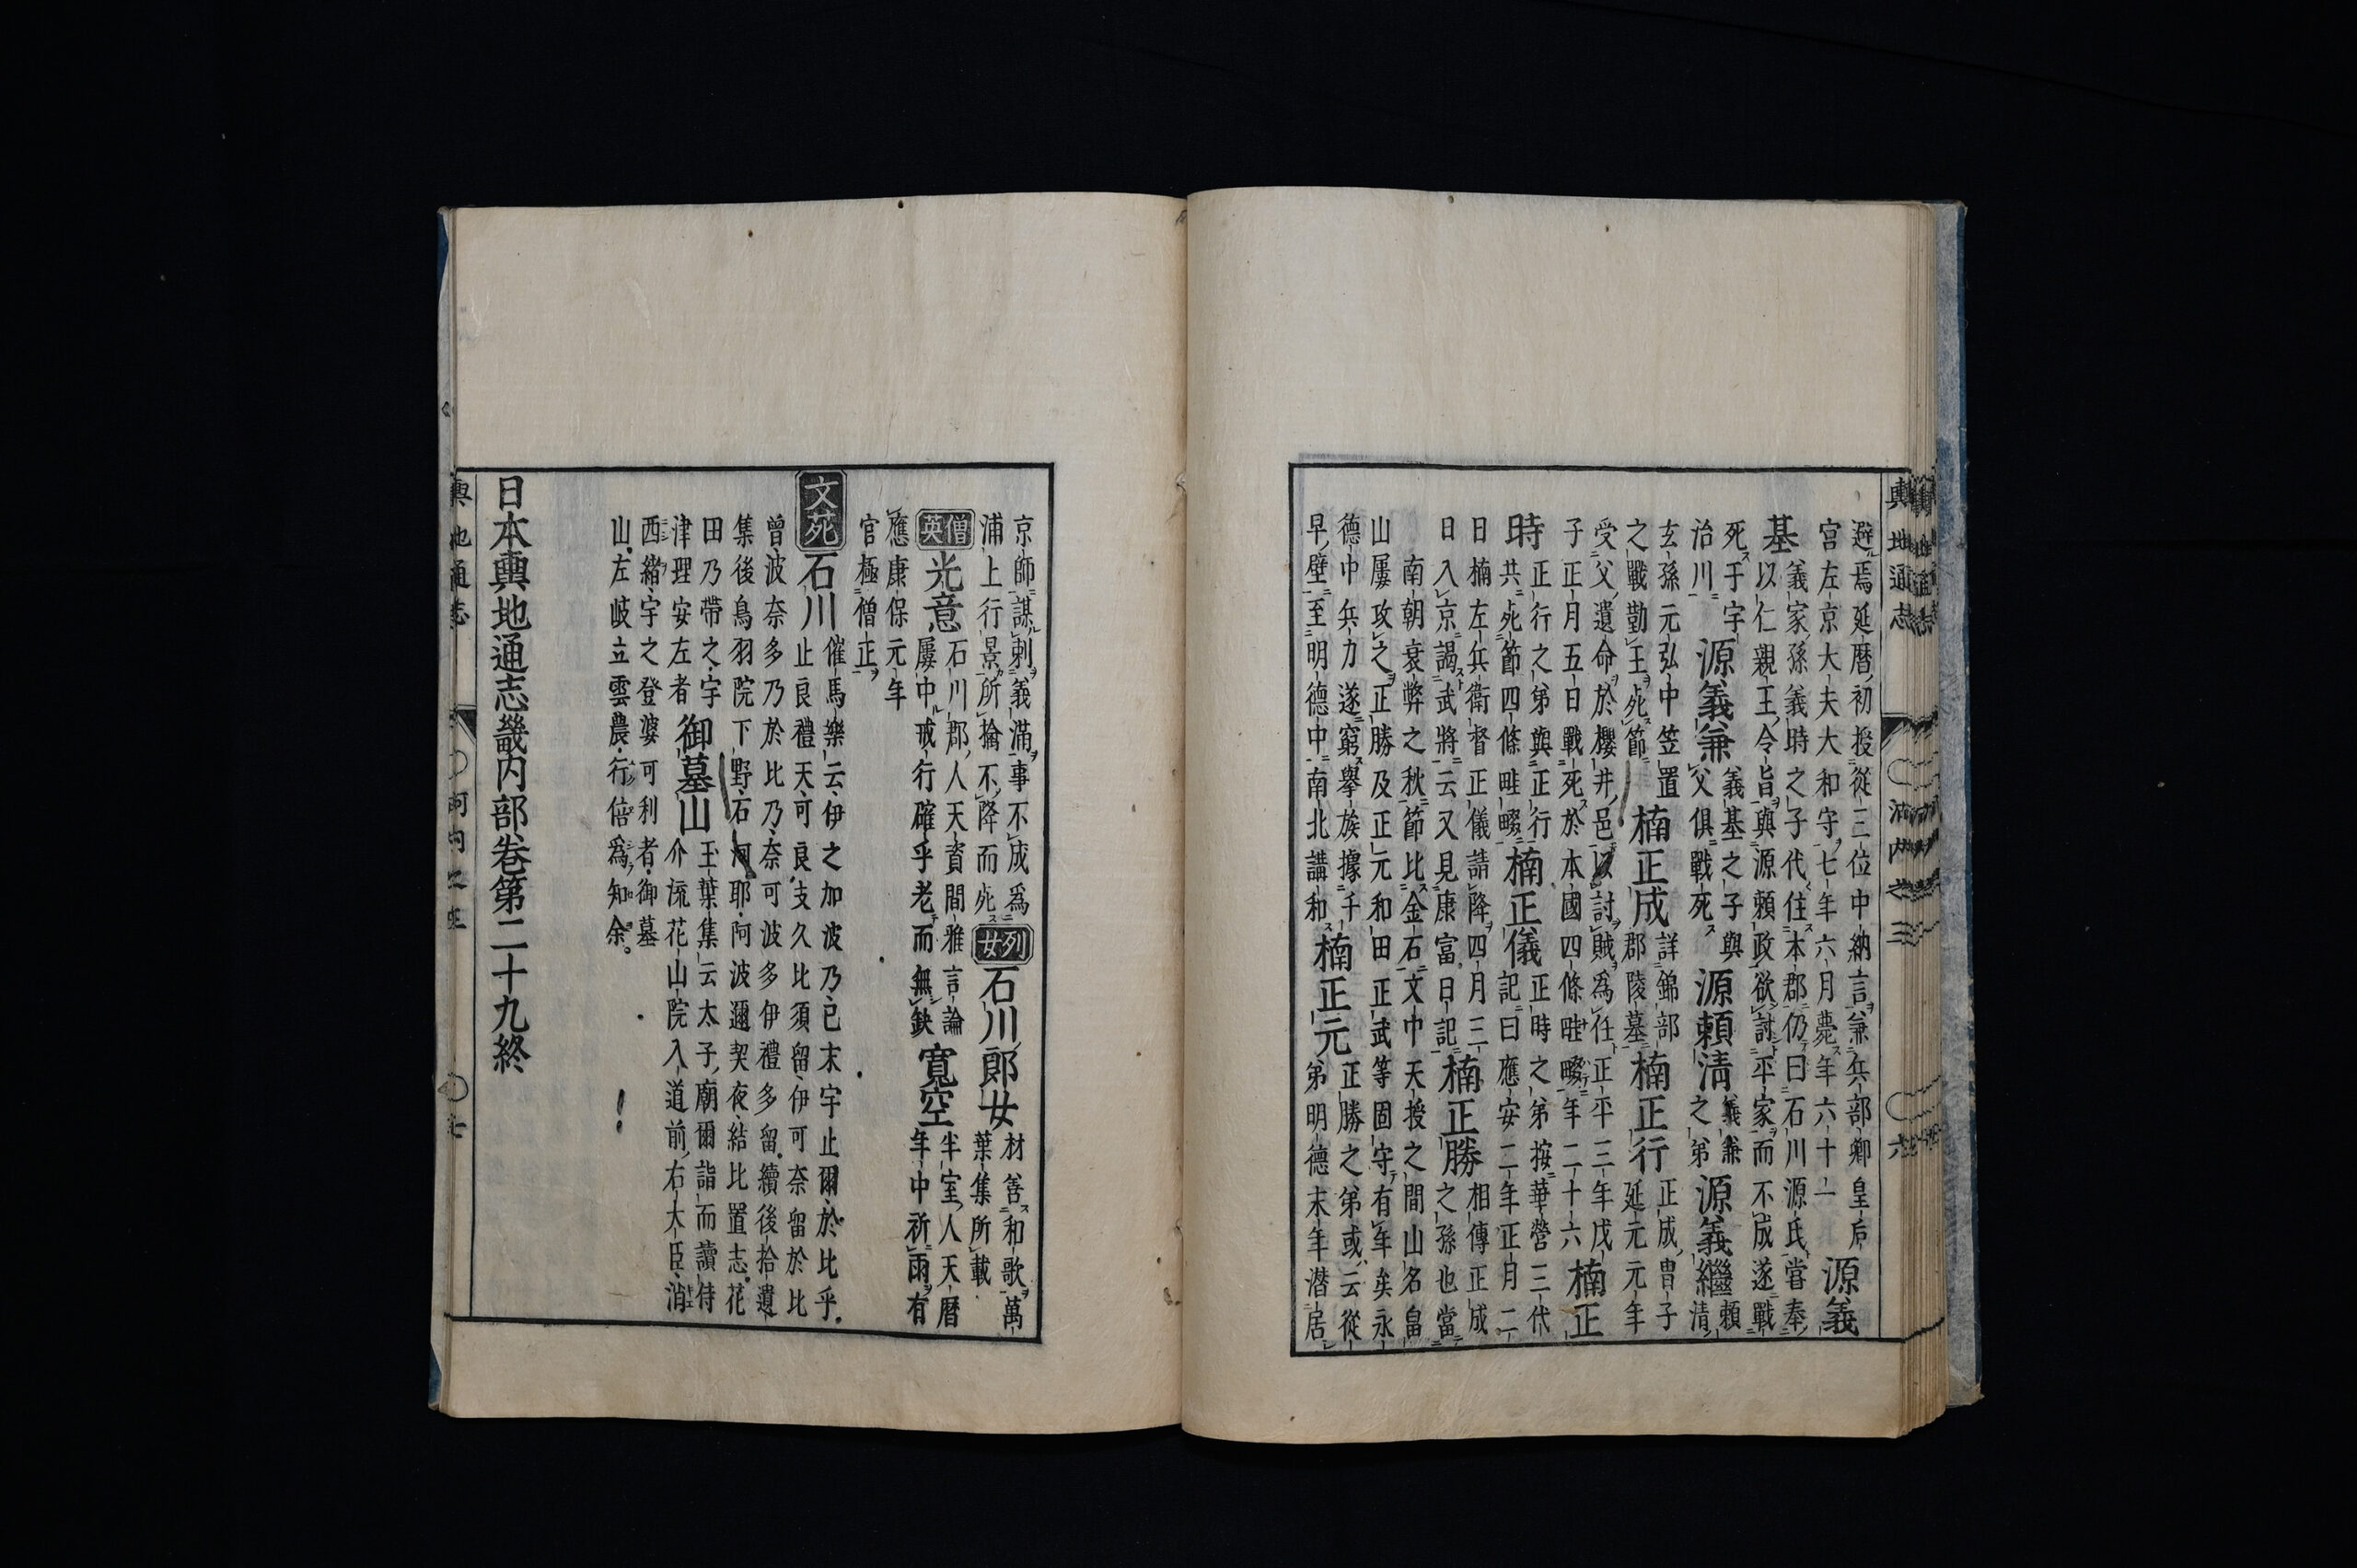 輿地通志 〇河內之三 〇六
避焉延暦初授從三位中納言兼兵部卿皇后
宮左京大夫大和守七年六月薨年六十一 源義
基 義家孫義時之子代住本郡仍曰石川源氏嘗奉
以仁親王令旨與源頼政欲討平家而不成遂戰
死于宇治川 源義兼 義基之子與父俱戰死 源頼清 義兼之弟 源義繼 頼清
玄孫元弘中笠置之戰勤王死節 楠正成 詳錦部郡陵墓 楠正行 正成曽子延元元年
受父遺命於櫻井邑以討賊為任正平三年戊
子正月五日戰死於本國四條畦畷年二十六 楠正
時 正行之弟與正行共死節四條畦畷 楠正儀 正時之弟按華營三代記曰應安二年正月二
日楠左兵衛督正儀請降四月三日入京謁武將云又見康富日記 楠正勝 相傳正成之孫也當
南朝衰弊之秋節比金石文中天授之間山名畠
山屢攻之正勝及正元和田正武等固守有年矣永
德中兵力遂窮擧族據千早壁至明德中南北講和 楠正元 正勝之弟或云從弟明德末年潜居
京師謀剌義滿事不成為浦上行景所擒不降而死 列女 石川郎女 材善和歌萬葉集所載
僧英 光意 石川郡人天資間雅言論屢中戒行確乎老而無缺 寛空 半室人天暦年中祈雨有
應康保元年官極僧正
文苑 石川 催馬樂云伊之加波乃已末宇止爾於比乎
止良禮天可良支久比須留伊可奈留於比
曾波奈多乃於比乃奈可波多伊禮多留續後拾遺
集後鳥羽院下野石河耶阿波邇契夜結比置志花
田乃帶之宇津理安左者 御墓山 玉葉集云太子廟爾詣而讀侍介流花山院入道前右大臣消
西緒宇之登婆可利者御墓
山左岐立雲農行倍為知余
日本輿地通志畿内部巻第二十九終
輿地通志